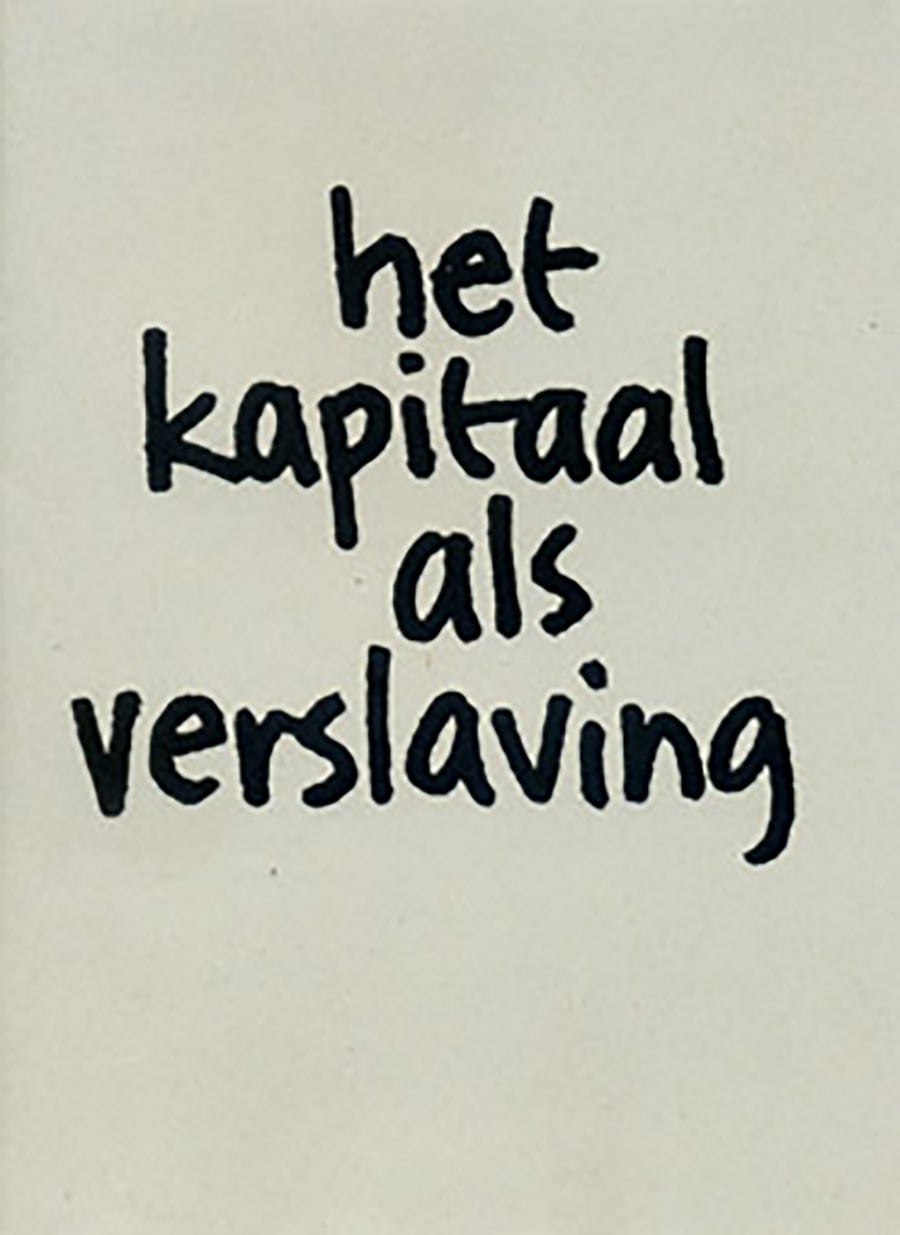 het
kapitaal
als
verslaving